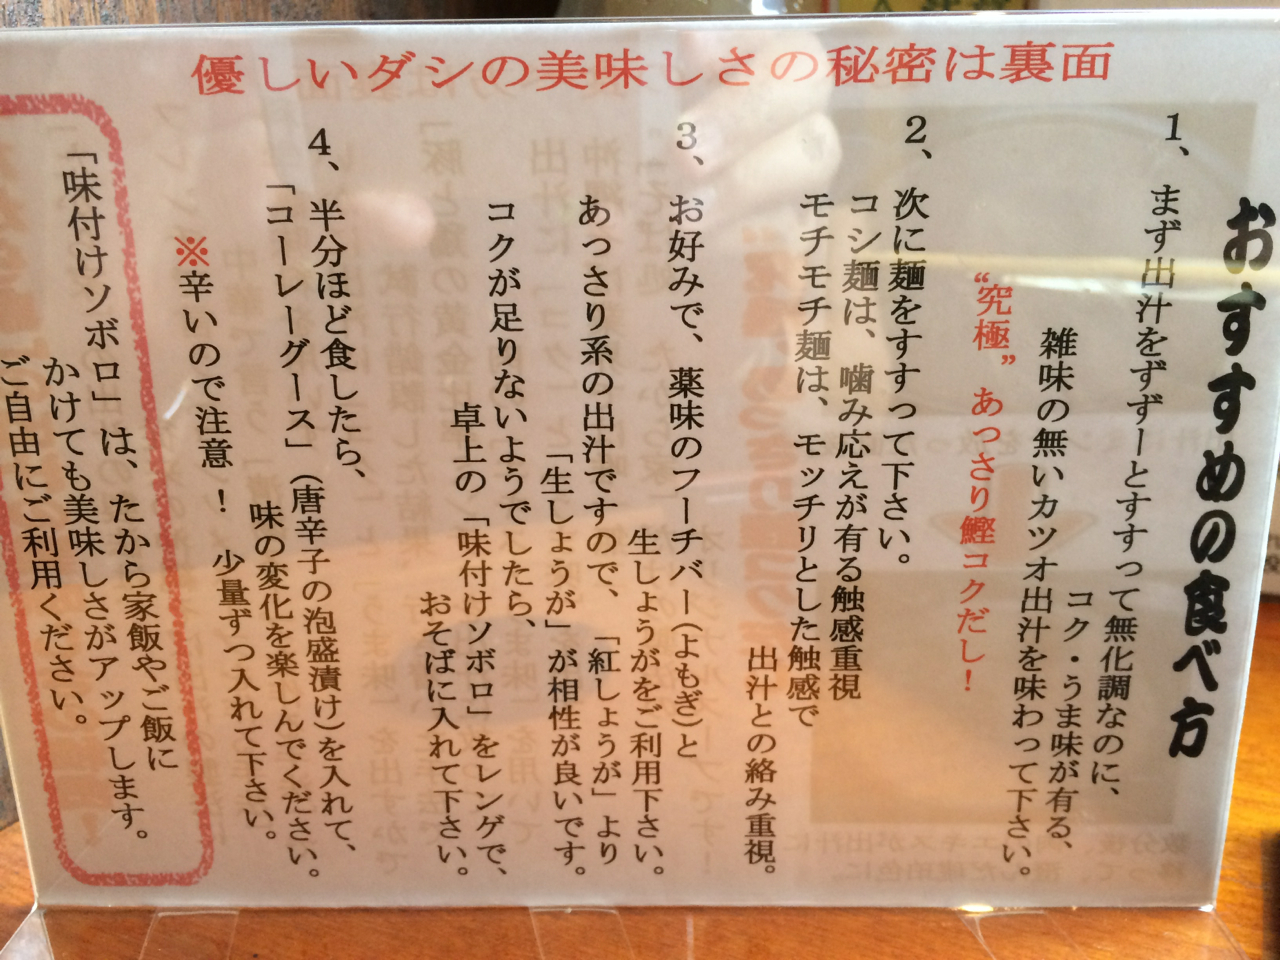 優しいダシの美味しさの秘密は裏面
おすすめの食べ方
1、まず出汁をずずーとすすって無化調なのに、
コク・うま味が有る、
雑味の無いカツオ出汁を味わって下さい。
“究極”あっさり鰹コクだし！
2、次に麺をすすって下さい。
コシ麺は、噛み応えが有る触感重視
モチモチ麺は、モッチリとした触感で
出汁との絡み重視。
3、お好みで、薬味のフーチバー(よもぎ)と
生しょうがをご利用下さい。
あっさり系の出汁ですので、「紅しょうが」より
「生しょうが」が相性が良いです。
コクが足りないようでしたら、
卓上の「味付けソボロ」をレンゲで、
おそばに入れて下さい。
4、半分ほど食したら、
「コーレーグース」(唐辛子の泡盛漬け)を入れて、
味の変化を楽しんでください。
※辛いので注意！　少量ずつ入れて下さい。
「味付けソボロ」は、たから家飯やご飯に
かけても美味しさがアップします。
ご自由にご利用ください。